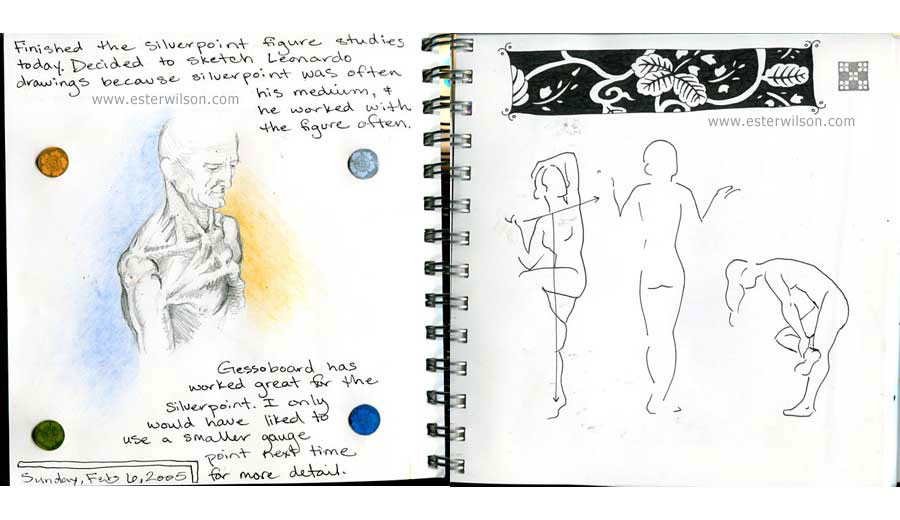 Finished the silverpoint figure studies
today. Decided to sketch Leonardo
drawings because silverpoint was often
his medium, &
he worked with
the figure often.
www.esterwilson.com
www.esterwilson.com
Gessoboard has
worked great for the
silverpoint. I only
would have liked to
use a smaller gauge
point next time
for more detail.
Sunday, Feb 6, 2005